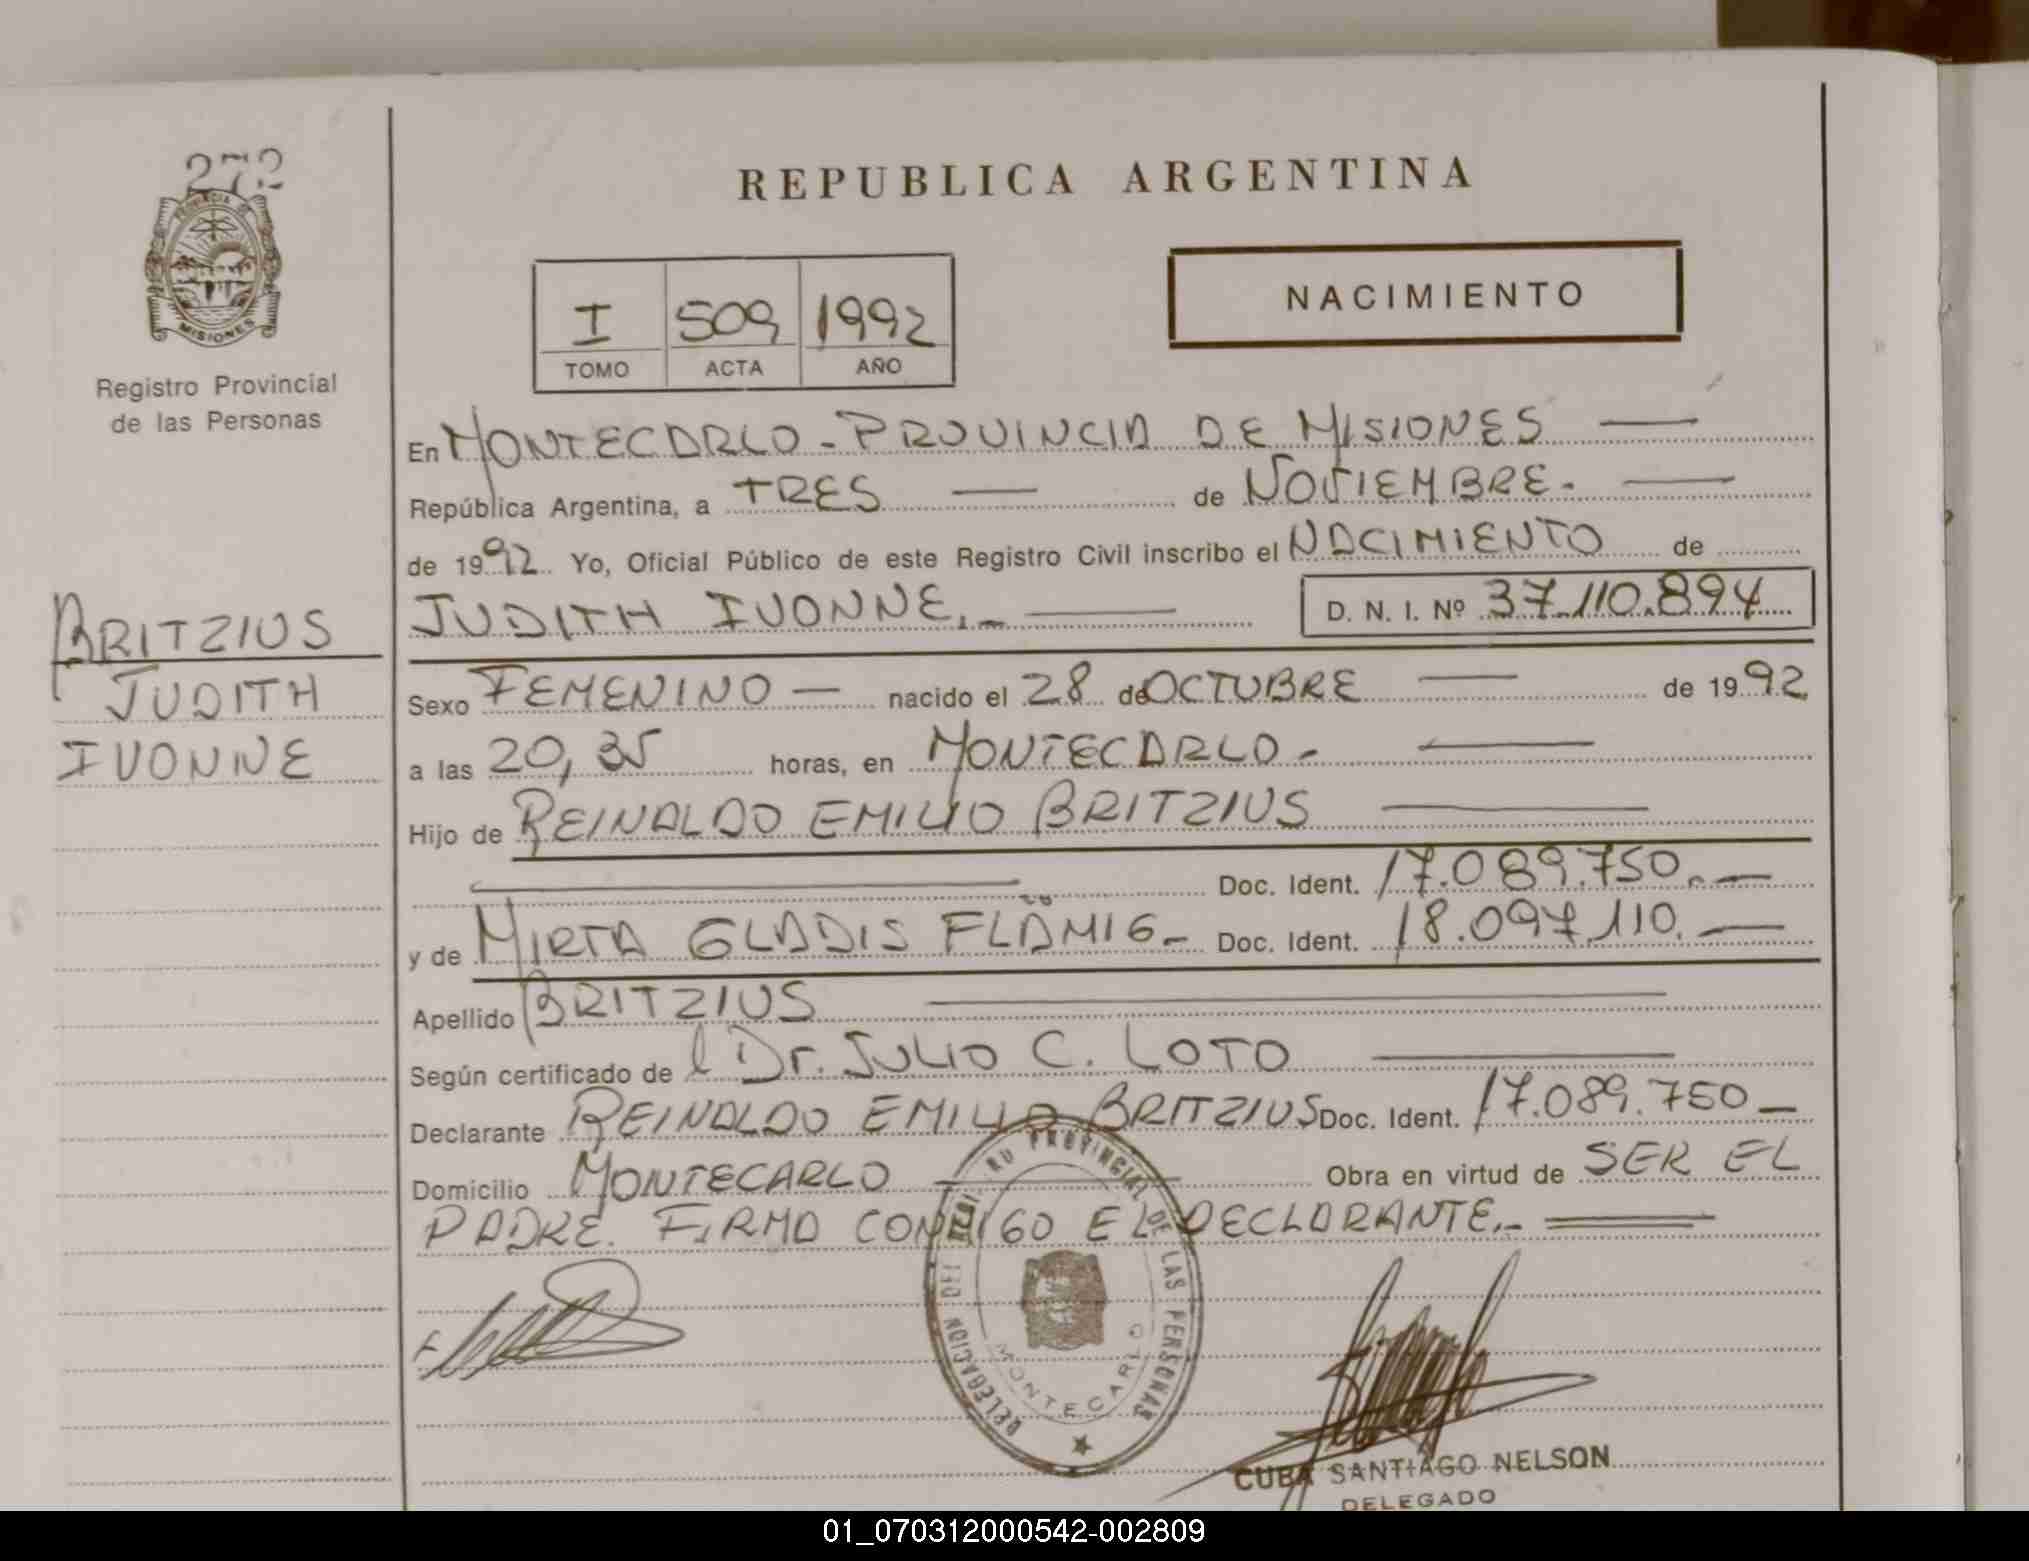 272
PROVINCIA DE
MISIONES
Registro Provincial
de las Personas
BRITZIUS
JUDITH
IVONNE
REPUBLICA ARGENTINA
I 509 1992
TOMO ACTA AÑO
NACIMIENTO
En MONTECARLO - PROVINCIA DE MISIONES
República Argentina, a TRES de NOVIEMBRE.
de 1992 Yo, Oficial Público de este Registro Civil inscribo el NACIMIENTO de
JUDITH IVONNE.- D. N. I. Nº 37.110.894
Sexo FEMENINO — nacido el 28 de OCTUBRE de 1992
a las 20,35 horas, en MONTECARLO -
Hijo de REINALDO EMILIO BRITZIUS
Doc. Ident. 17.089.750.-
y de MIRTA GLADIS FLÄMIG - Doc. Ident. 18.097.110.
Apellido BRITZIUS
Según certificado de l Dr. JULIO C. LOTO
Declarante REINALDO EMILIO BRITZIUS Doc. Ident. 17.089.750 -
Domicilio MONTECARLO Obra en virtud de SER EL
PADRE. FIRMA CONMIGO EL DECLARANTE.-
DELEGACION DEL REGISTRO PROVINCIAL DE LAS PERSONAS
MONTECARLO
CUBA SANTIAGO NELSON
DELEGADO
01_070312000542-002809